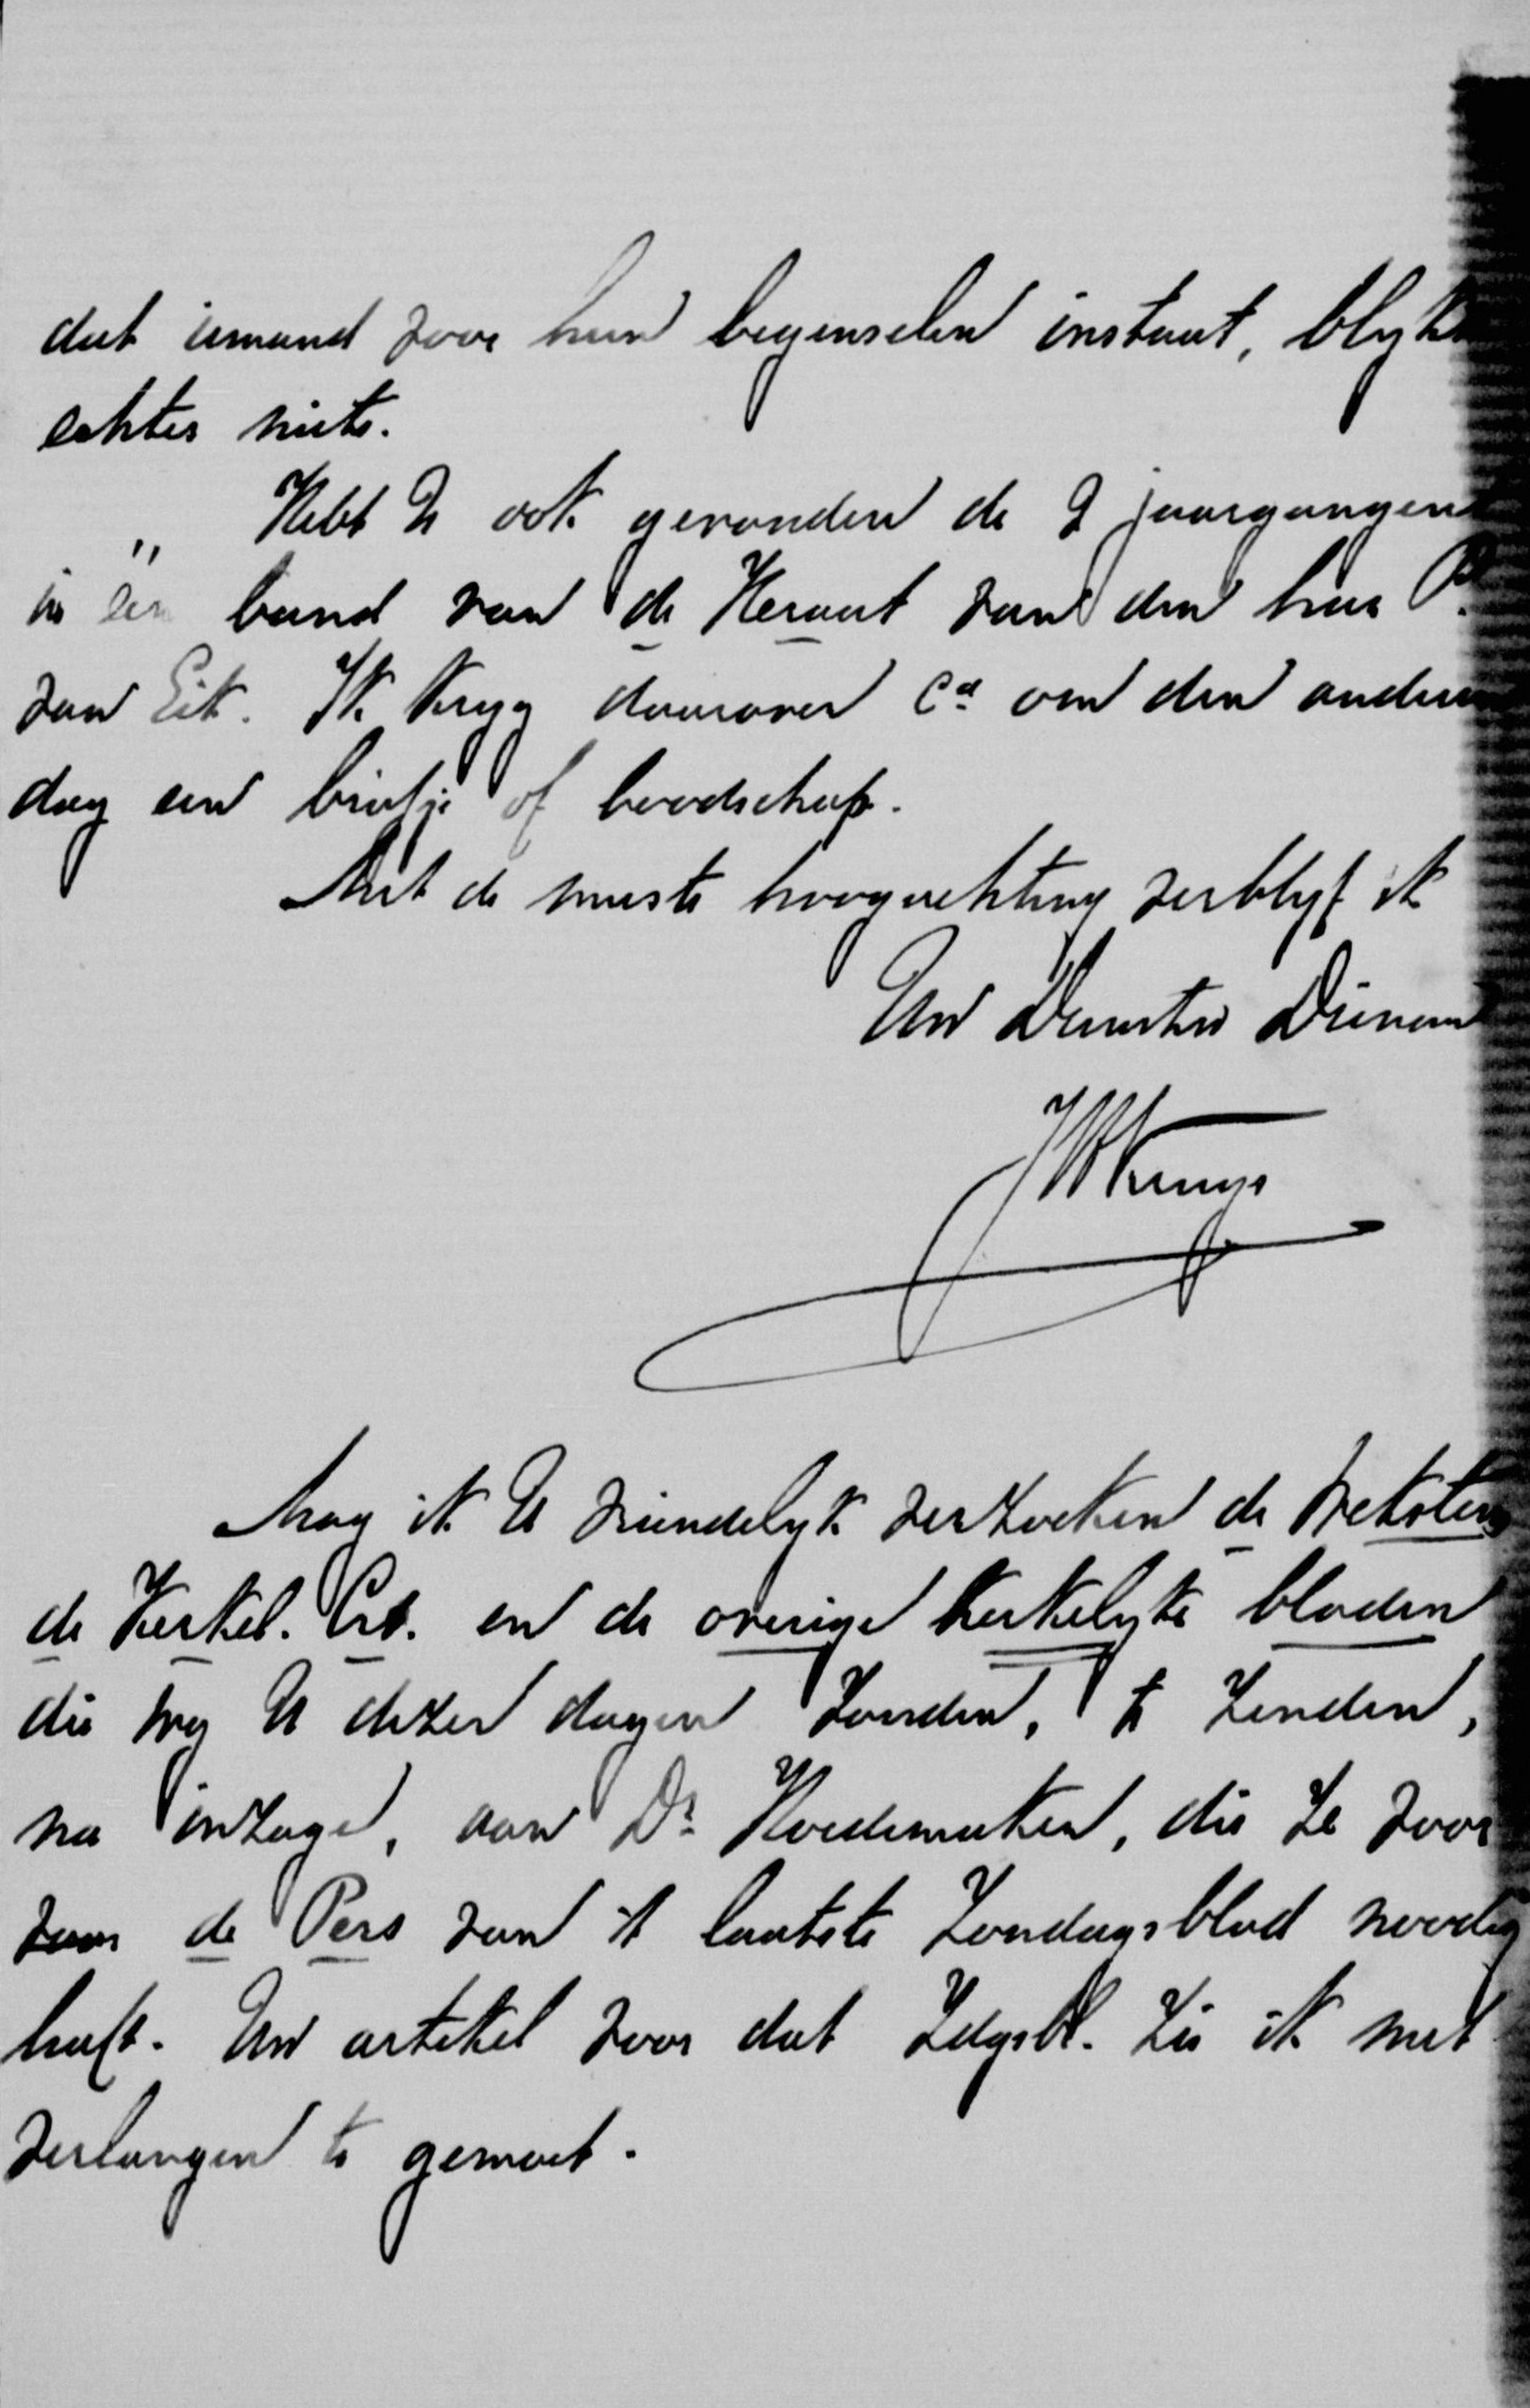 dat iemand voor hun beginselen instaat, blykt
echter niets.
Hebt U ook gevonden de 2 jaargangen
in één band van de Heraut van den heer P.
van Eik. Ik kryg daarover ca om den anderen
dag een briefje of boodschap.
Met de meeste hoogachting verblyf ik
Uw Dienaar
JHKruyt
Mag ik U vriendelyk verzoeken de Wekstem
de Kerkel. Crt. en de overige kerkelyke bladen
die wy U dezer dagen zonden, te zenden,
na inzage, aan Dr Hoedemaker, die ze voor
voor de Pers van 't laatste Zondagsblad noodig
heeft. Uw artikel voor dat Zdgsbl. zie ik met
verlangen te gemoet.